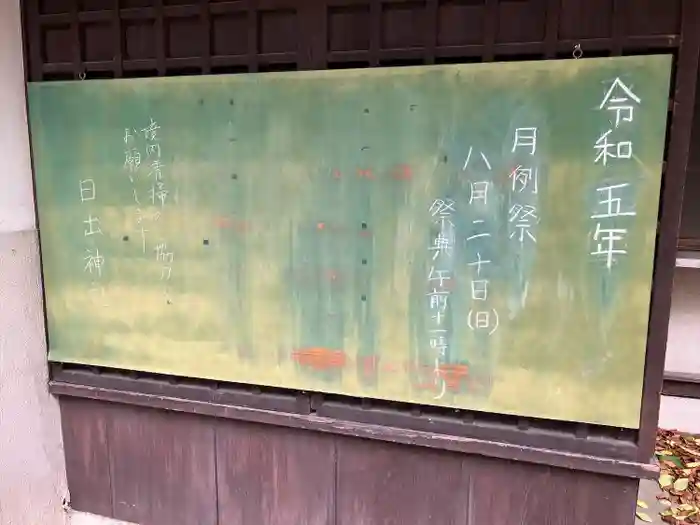 令和五年
月例祭
八月二十日(日)
祭典午前十一時より
境内清掃
協力
お願いします
日出神